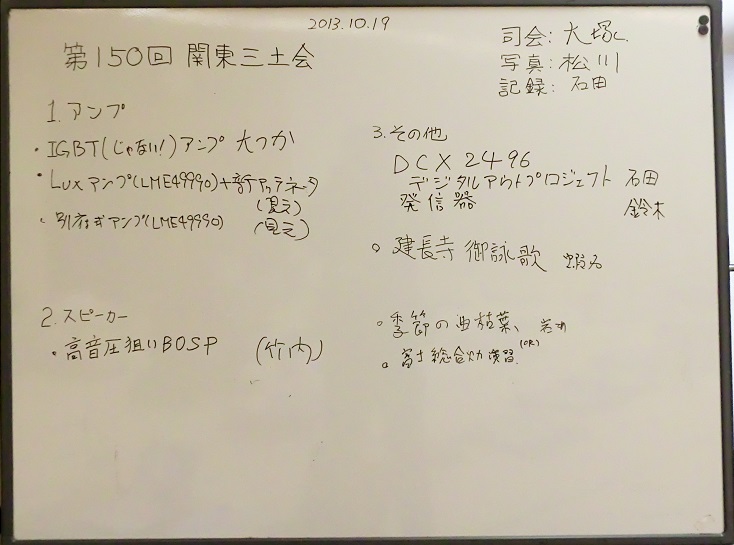 2013.10.19
第150回 関東三土会
司会: 大塚
写真: 松川
記録: 石田
1. アンプ
・IGBT(じゃない!)アンプ 大つか
・Luxアンプ(LME49990)+新アッテネータ
アンプ(LME49990)
2. スピーカー
・高音圧狙いBOSP (竹内)
3. その他
DCX2496
デジタルアウトプロジェクト 石田
発信器 鈴木
○ 建長寺 御詠歌
・季節の
○ 富士総合火力演習